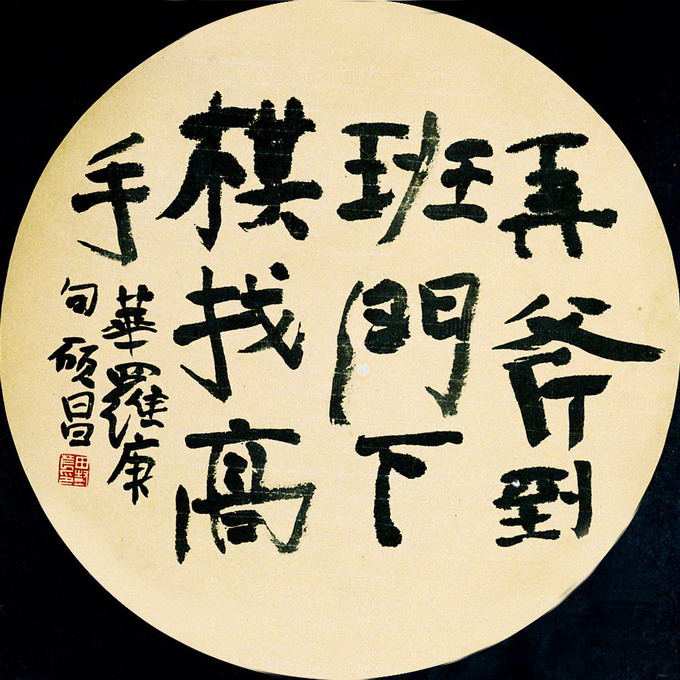 弄斧到
班門下
棋找高
手
華羅庚
句硕昌